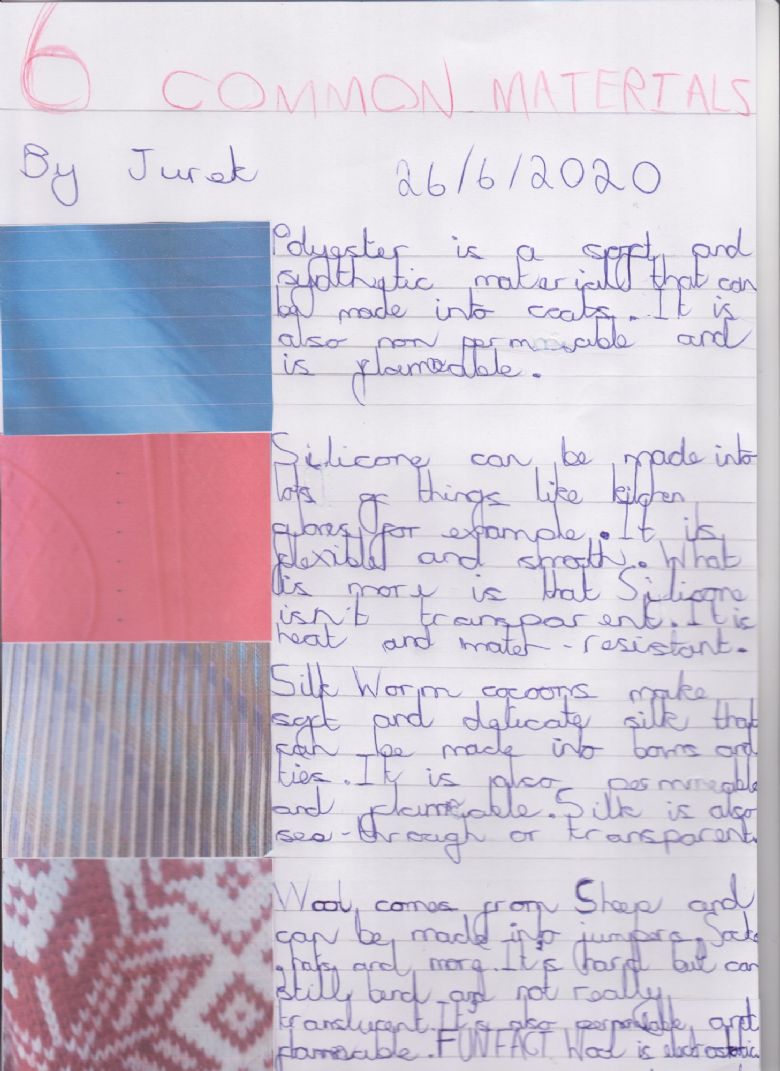 6 COMMON MATERIALS
By Jurek 26/6/2020
Polyester is a soft and
sydthetic material that can
be made into coats. It is
also non permable and
is flameable.
Silicone can be made into
lots of things like kitchen
gloves, for example. It is
flexible and smooth. What
is more is that Silicone
isn't transparent. It is
heat and water-resistant.
Silk Worm cocoons make
soft and delicate silk that
can be made into bows and
ties. It is also permeable
and flameable. Silk is also
see-through or transparent.
Wool comes from Sheep and
can be made into jumpers, Socks
, hats, and more. It's hard but can
still bend and not really
translucent. It's also permable and
flameable. FUN FACT Wool is electrostatic